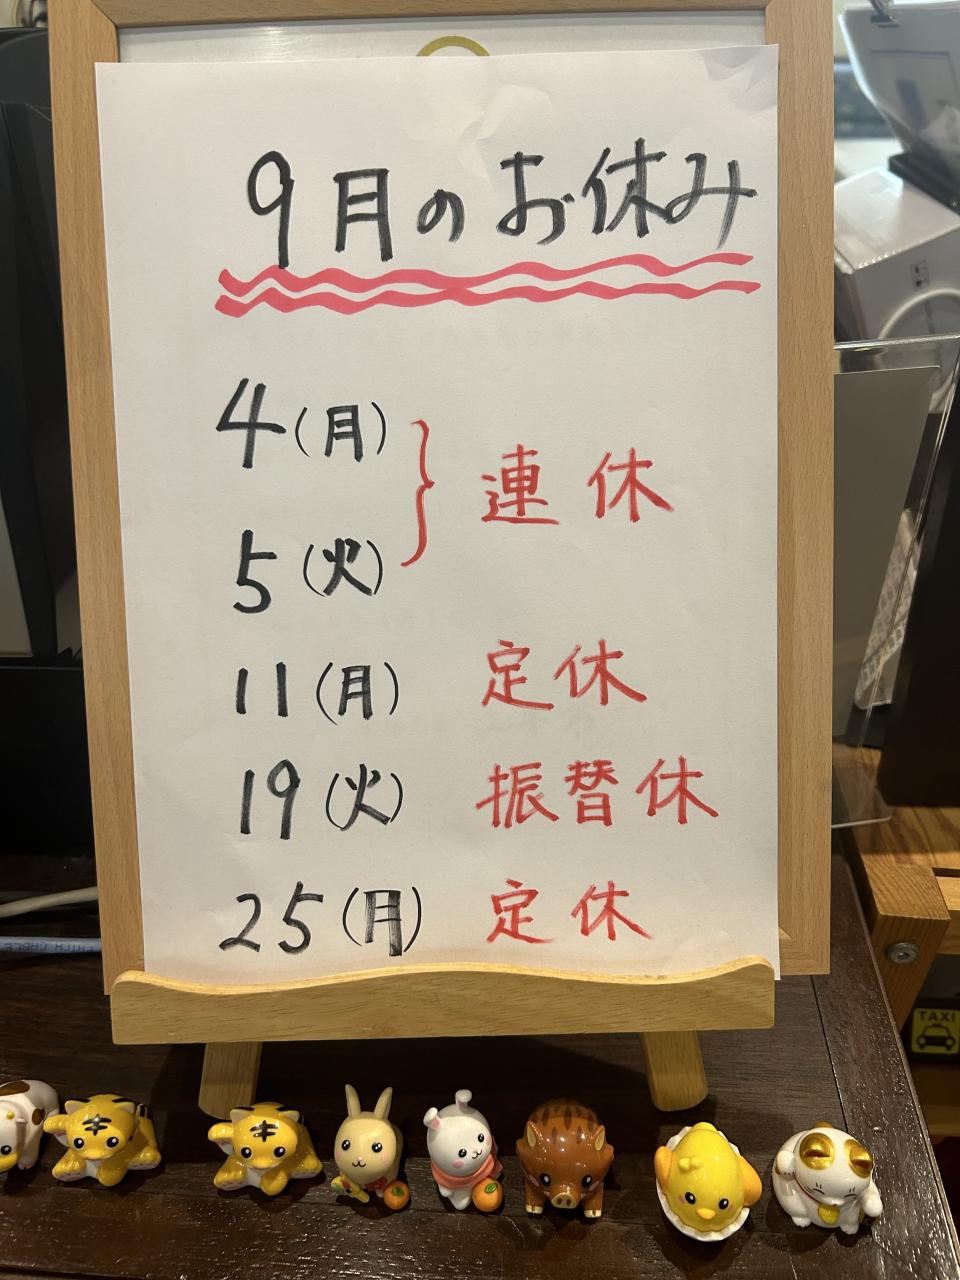 9月のお休み
4(月)
連休
5(火)
11(月) 定休
19(火) 振替休
25(月) 定休
PATCH CABLE
TAXI